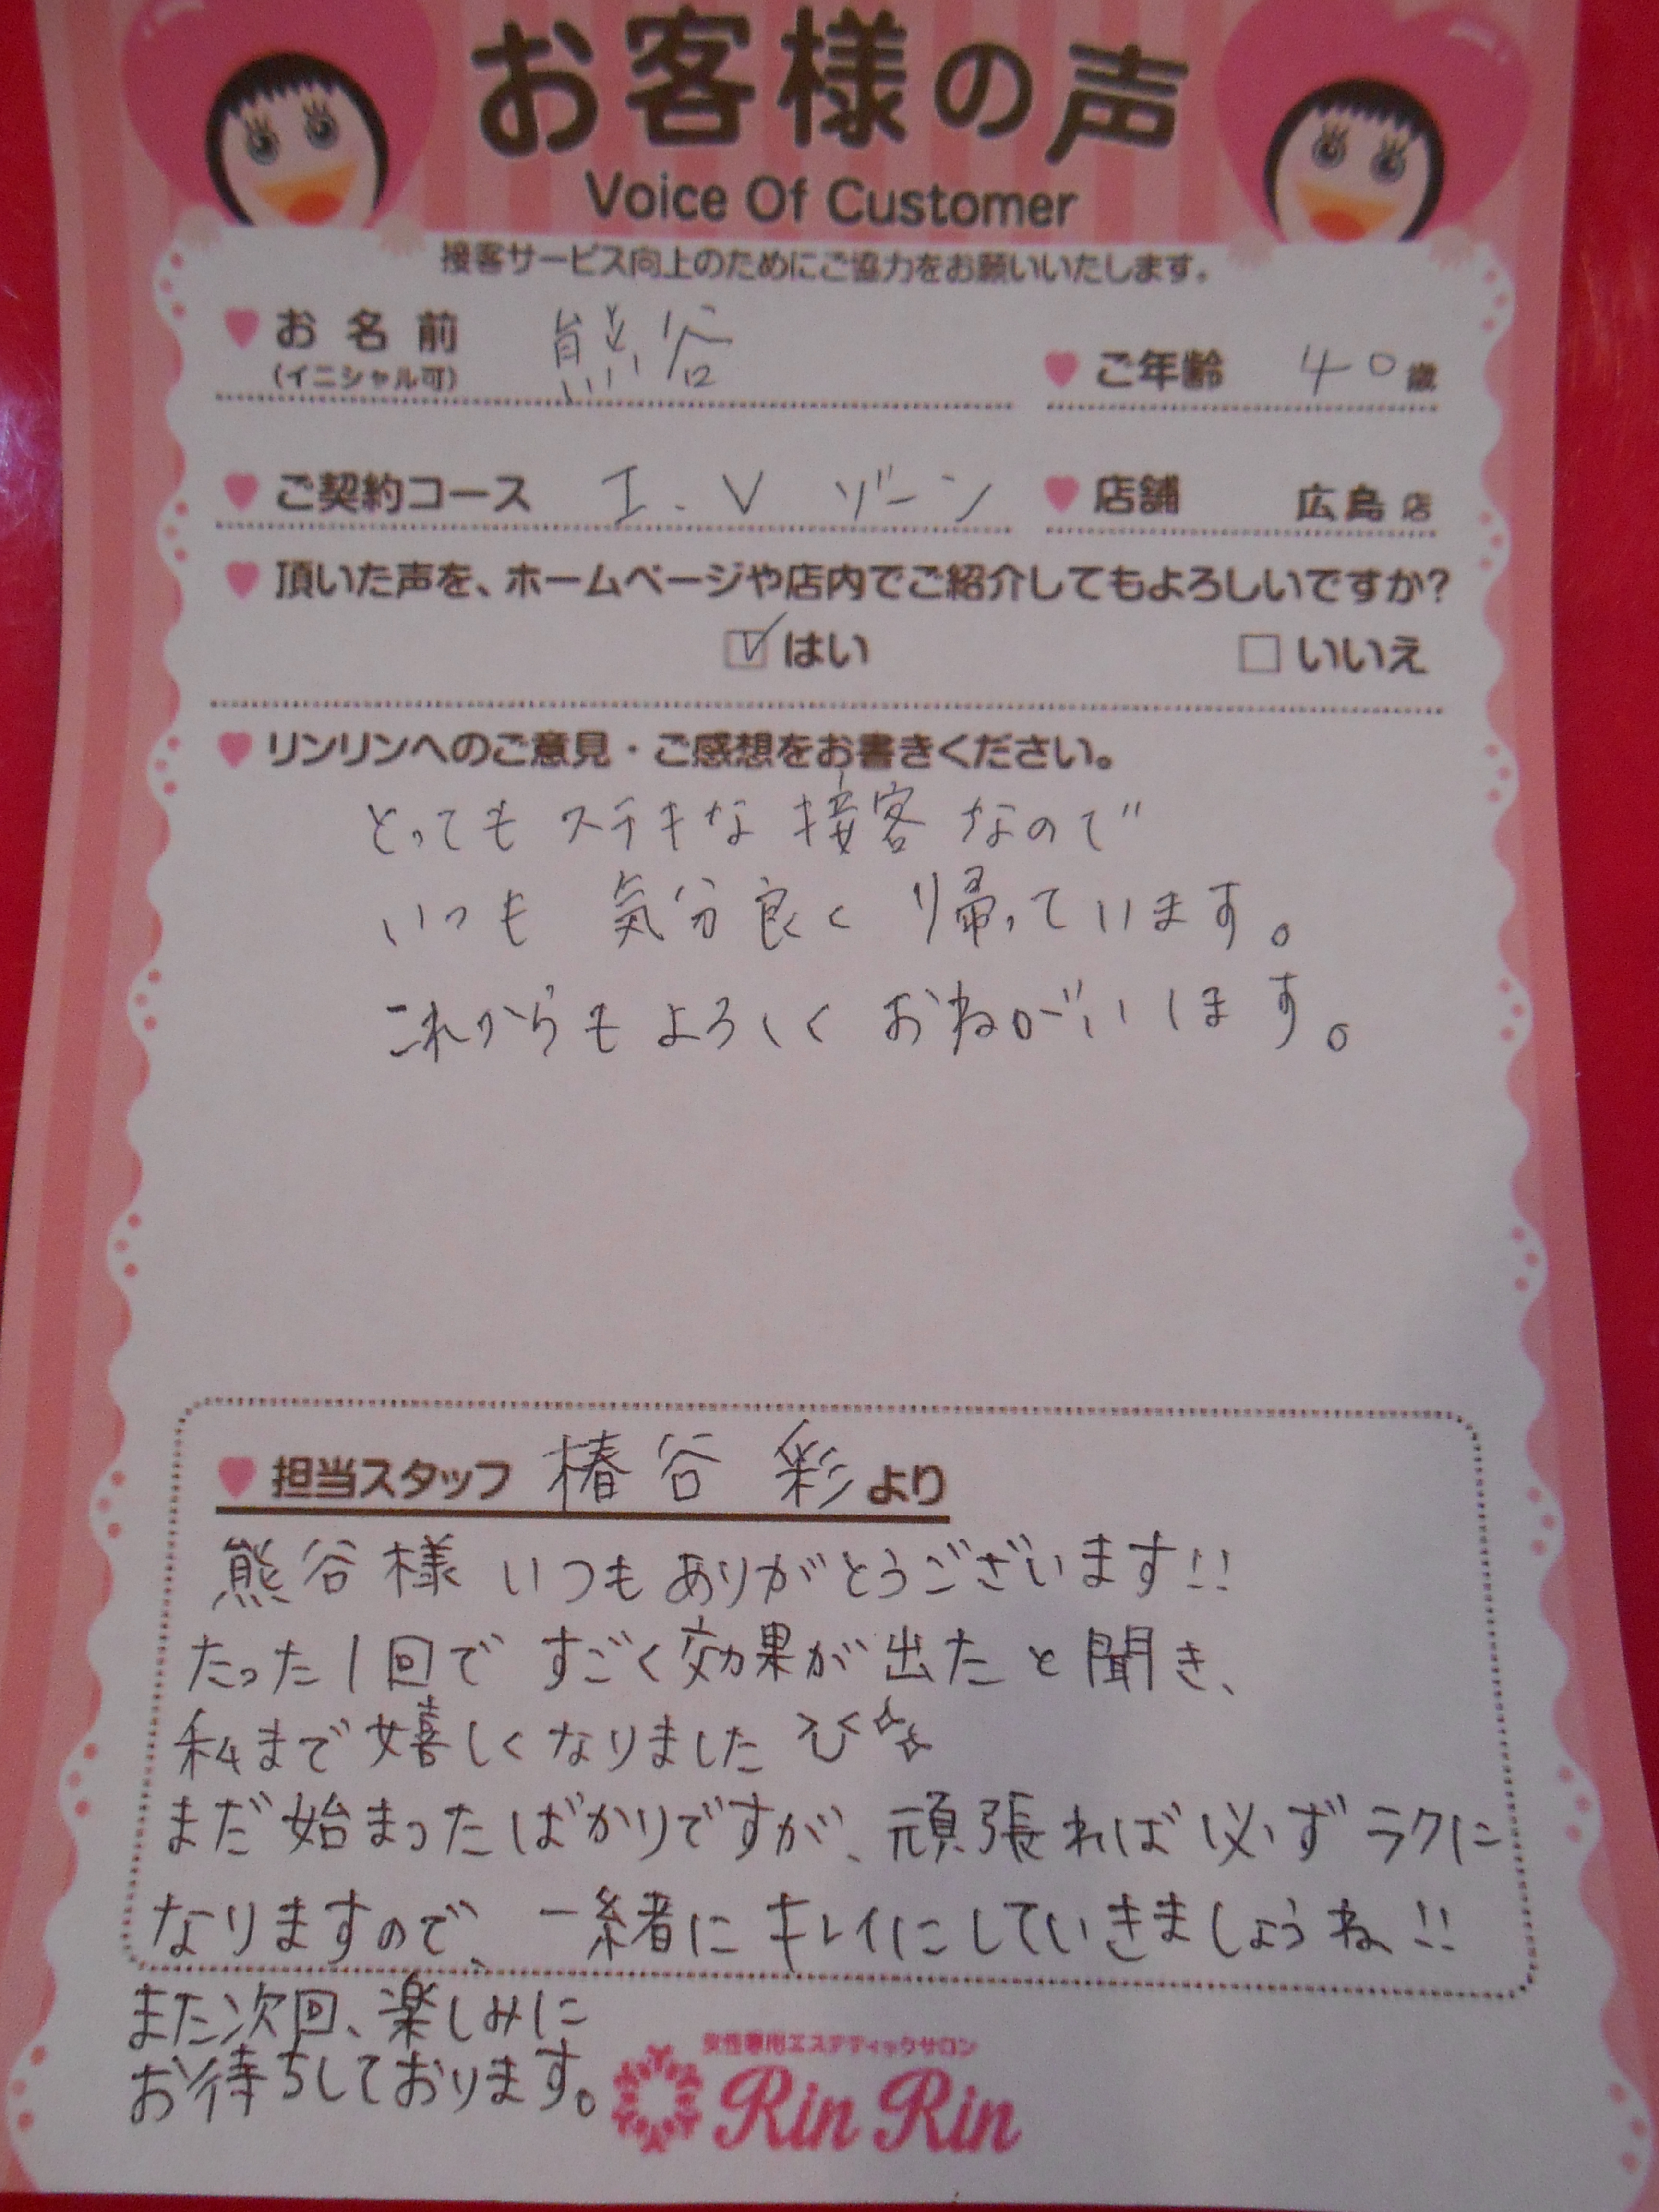 お客様の声
Voice Of Customer
接客サービス向上のためにご協力をお願いいたします。
お名前 熊谷
(イニシャル可)
ご年齢 40歳
ご契約コース I.Vゾーン
店舗 広島店
頂いた声を、ホームページや店内でご紹介してもよろしいですか?
はい いいえ
リンリンへのご意見・ご感想をお書きください。
とってもステキな接客なので
いつも 気分良く 帰っています。
これからもよろしく おねがいします。
担当スタッフ 椿谷 彩より
熊谷様 いつもありがとうございます!!
たった1回で すごく効果が出たと聞き、
私まで嬉しくなりました
まだ始まったばかりですが、頑張れば必ずラクに
なりますので、一緒にキレイにしていきましょうね!!
また次回、楽しみに
お待ちしております。
女性専用エステティックサロン
Rin Rin